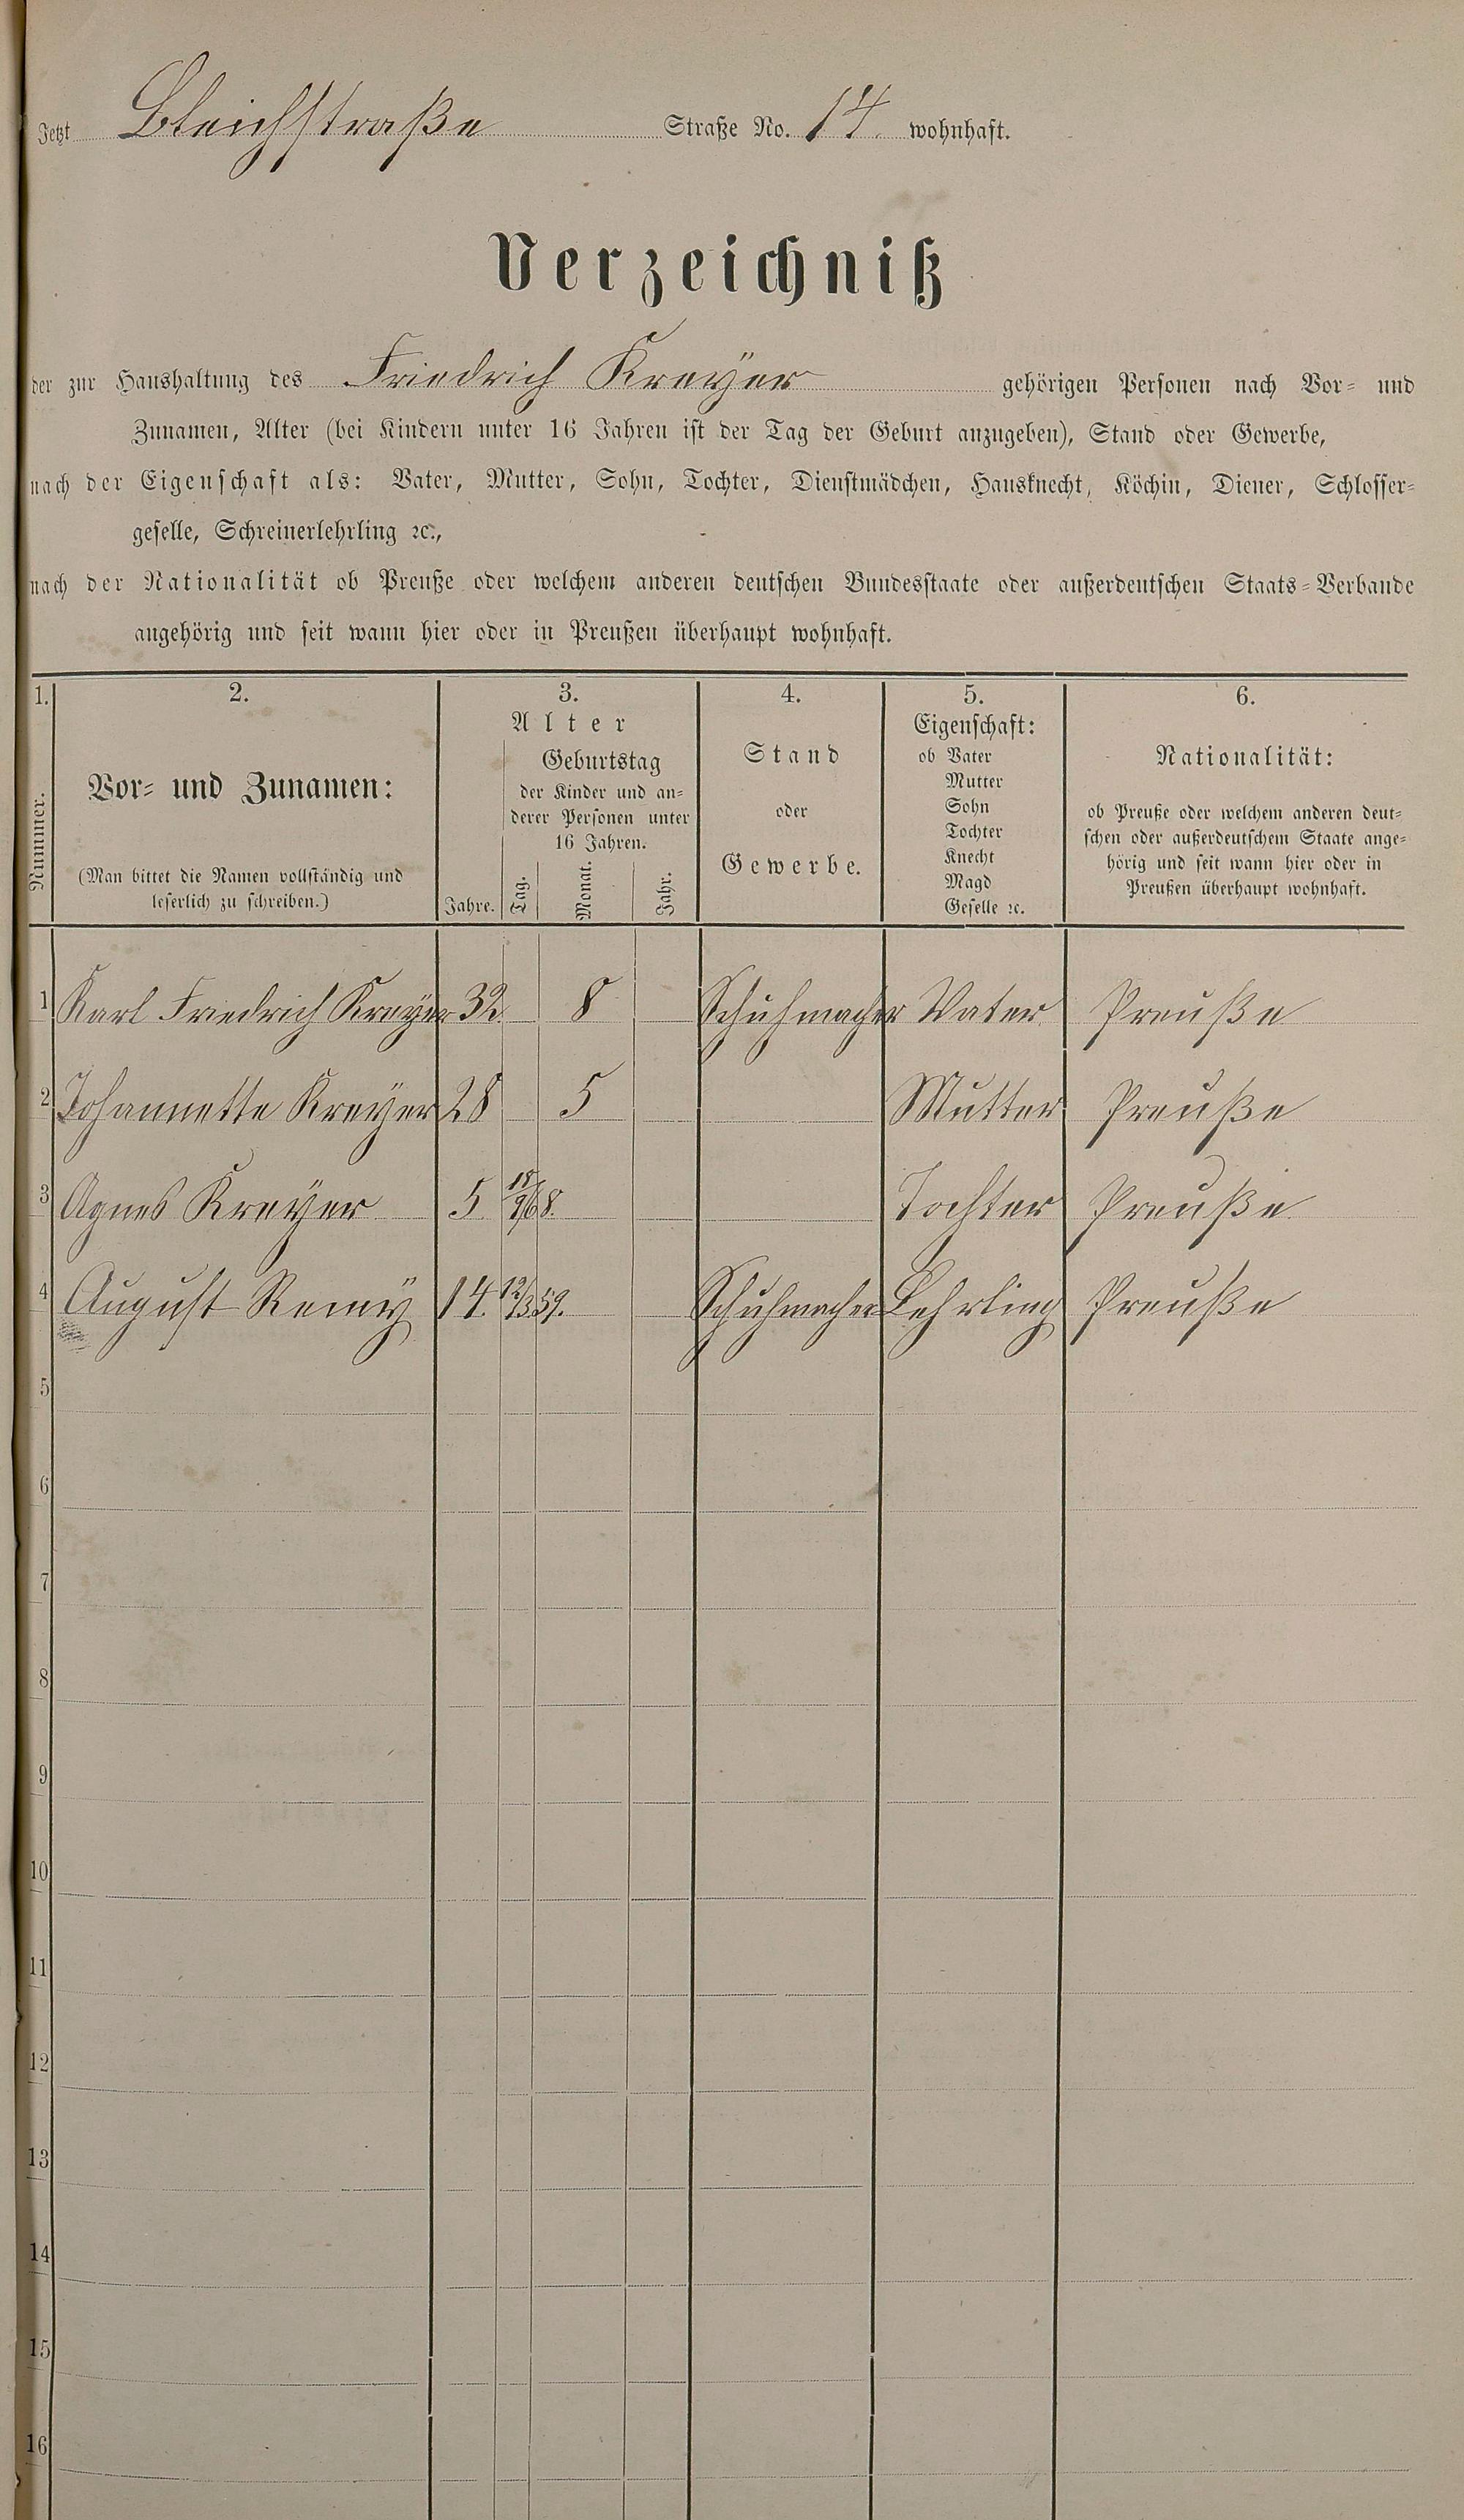 Jetzt Bleichstraße Straße No. 14. wohnhaft.
Verzeichniß
der zur Haushaltung des Friedrich Kreyer gehörigen Personen nach Vor- und
Zunamen, Alter (bei Kindern unter 16 Jahren ist der Tag der Geburt anzugeben), Stand oder Gewerbe,
nach der Eigenschaft als: Vater, Mutter, Sohn, Tochter, Dienstmädchen, Hausknecht, Köchin, Diener, Schlosser-
geselle, Schreinerlehrling ꝛc.,
nach der Nationalität ob Preuße oder welchem anderen deutschen Bundesstaate oder außerdeutschen Staats-Verbande
angehörig und seit wann hier oder in Preußen überhaupt wohnhaft.
1. 2. 3. 4. 5. 6.
Nummer.
Vor- und Zunamen:
(Man bittet die Namen vollständig und
leserlich zu schreiben.)
Alter
Jahre.
Geburtstag
der Kinder und an-
derer Personen unter
16 Jahren.
Tag. Monat. Jahr.
Stand
oder
Gewerbe.
Eigenschaft:
ob Vater
Mutter
Sohn
Tochter
Knecht
Magd
Geselle ꝛc.
Nationalität:
ob Preuße oder welchem anderen deut-
schen oder außerdeutschem Staate ange-
hörig und seit wann hier oder in
Preußen überhaupt wohnhaft.
1 Karl Friedrich Kreyer 32 8 Schuhmacher Vater Preuße
2 Johannette Kreyer 28 5 Mutter Preuße
3 Agnes Kreyer 5 18/9/68. Tochter Preuße
4 August Remy 14. 12/3 59. Schuhmacher Lehrling Preuße
5
6
7
8
9
10
11
12
13
14
15
16